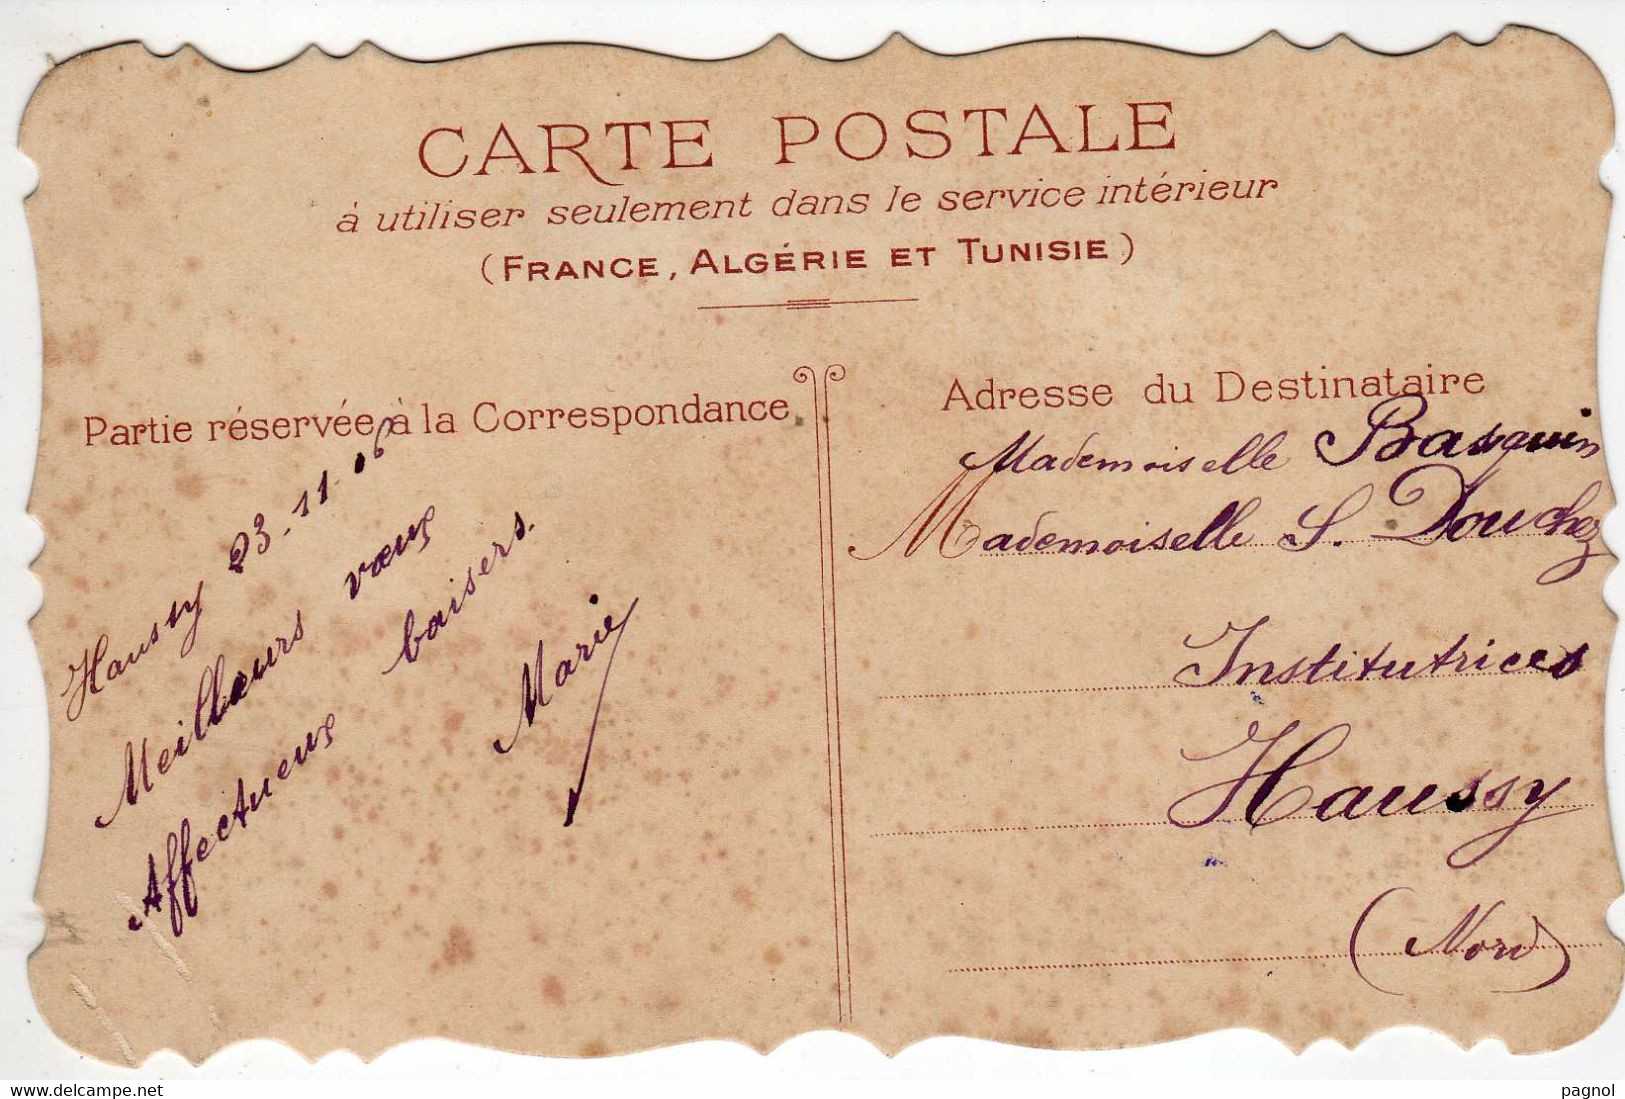 CARTE POSTALE
à utiliser seulement dans le service intérieur
(FRANCE, ALGÉRIE ET TUNISIE)
Partie réservée à la Correspondance
Haussy 23-11-06
Meilleurs vœux
Affectueux baisers.
Marie
Adresse du Destinataire
Mademoiselle Basquin
Mademoiselle S. Douchez
Institutrices
Haussy
(Nord)
pagnol